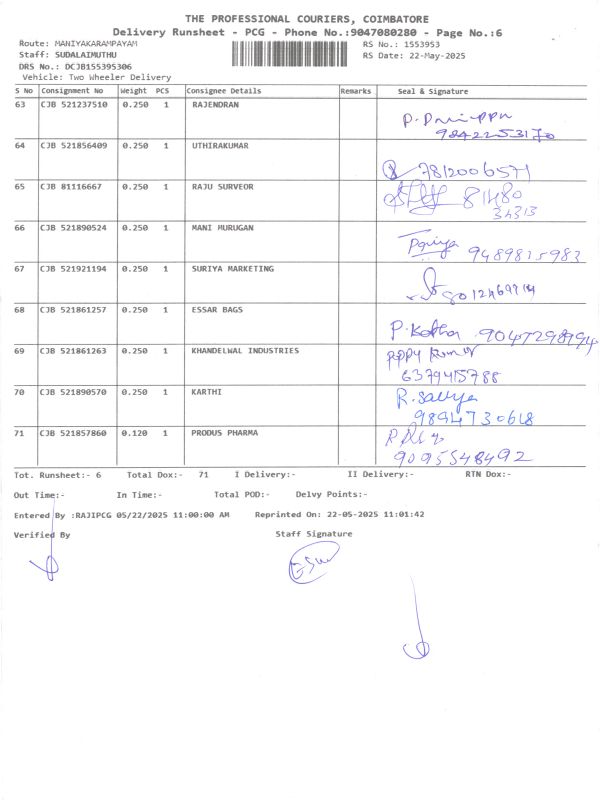 THE PROFESSIONAL COURIERS, COIMBATORE
Delivery Runsheet - PCG - Phone No.:9047080280 - Page No.:6
Route: MANIYAKARAMPAYAM RS No.: 1553953
Staff: SUDALAIMUTHU RS Date: 22-May-2025
DRS No.: DCJB155395306
Vehicle: Two Wheeler Delivery
S No Consignment No Weight PCS Consignee Details Remarks Seal & Signature
63 CJB 521237510 0.250 1 RAJENDRAN
64 CJB 521856409 0.250 1 UTHIRAKUMAR
7812006571
65 CJB 81116667 0.250 1 RAJU SURVEOR
81480
34313
66 CJB 521890524 0.250 1 MANI MURUGAN
Pqriya 9489815983
67 CJB 521921194 0.250 1 SURIYA MARKETING
68 CJB 521861257 0.250 1 ESSAR BAGS
P. 9047298994
69 CJB 521861263 0.250 1 KHANDELWAL INDUSTRIES
6379415788
70 CJB 521890570 0.250 1 KARTHI
R. Sathya
9894730618
71 CJB 521857860 0.120 1 PRODUS PHARMA
9095548492
Tot. Runsheet:- 6 Total Dox:- 71 I Delivery:- II Delivery:- RTN Dox:-
Out Time:- In Time:- Total POD:- Delvy Points:-
Entered By :RAJIPCG 05/22/2025 11:00:00 AM Reprinted On: 22-05-2025 11:01:42
Verified By Staff Signature